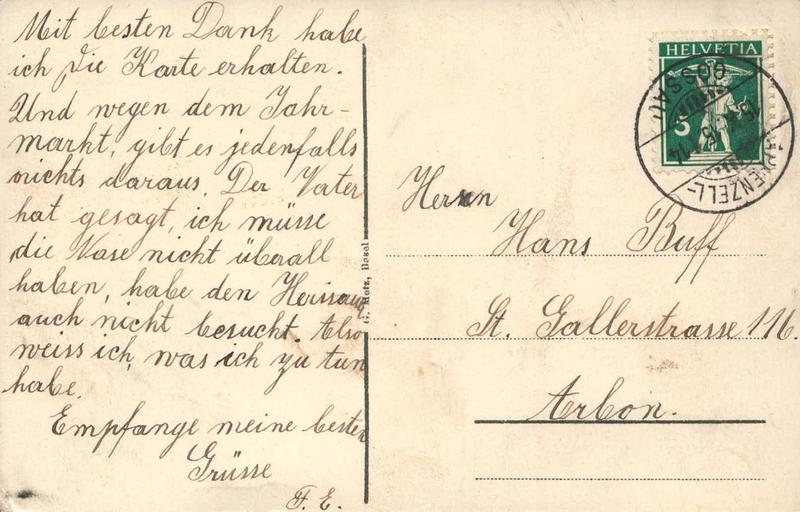 Mit besten Dank habe
ich die Karte erhalten.
Und wegen dem Jahr-
markt, gibt es jedenfalls
nichts daraus. Der Vater
hat gesagt, ich müsse
die Nase nicht überall
haben, habe den Herisauer
auch nicht besucht. Also
weiss ich, was ich zu tun
habe.
Empfange meine besten
Grüsse
F. E.
G. Metz, Basel
HELVETIA
5
GOSSAU
APPENZELL
Herrn
Hans Buff
St. Gallerstrasse 116.
Arbon.